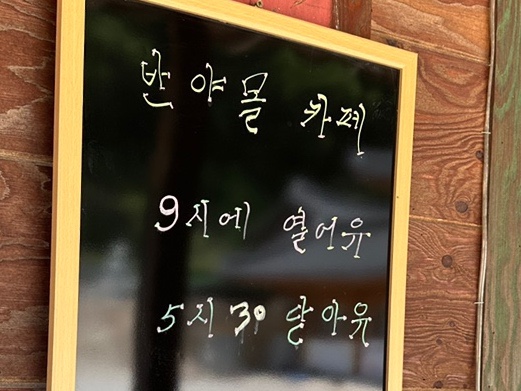 반야몰 카페
9시에 열어유
5시30 닫아유